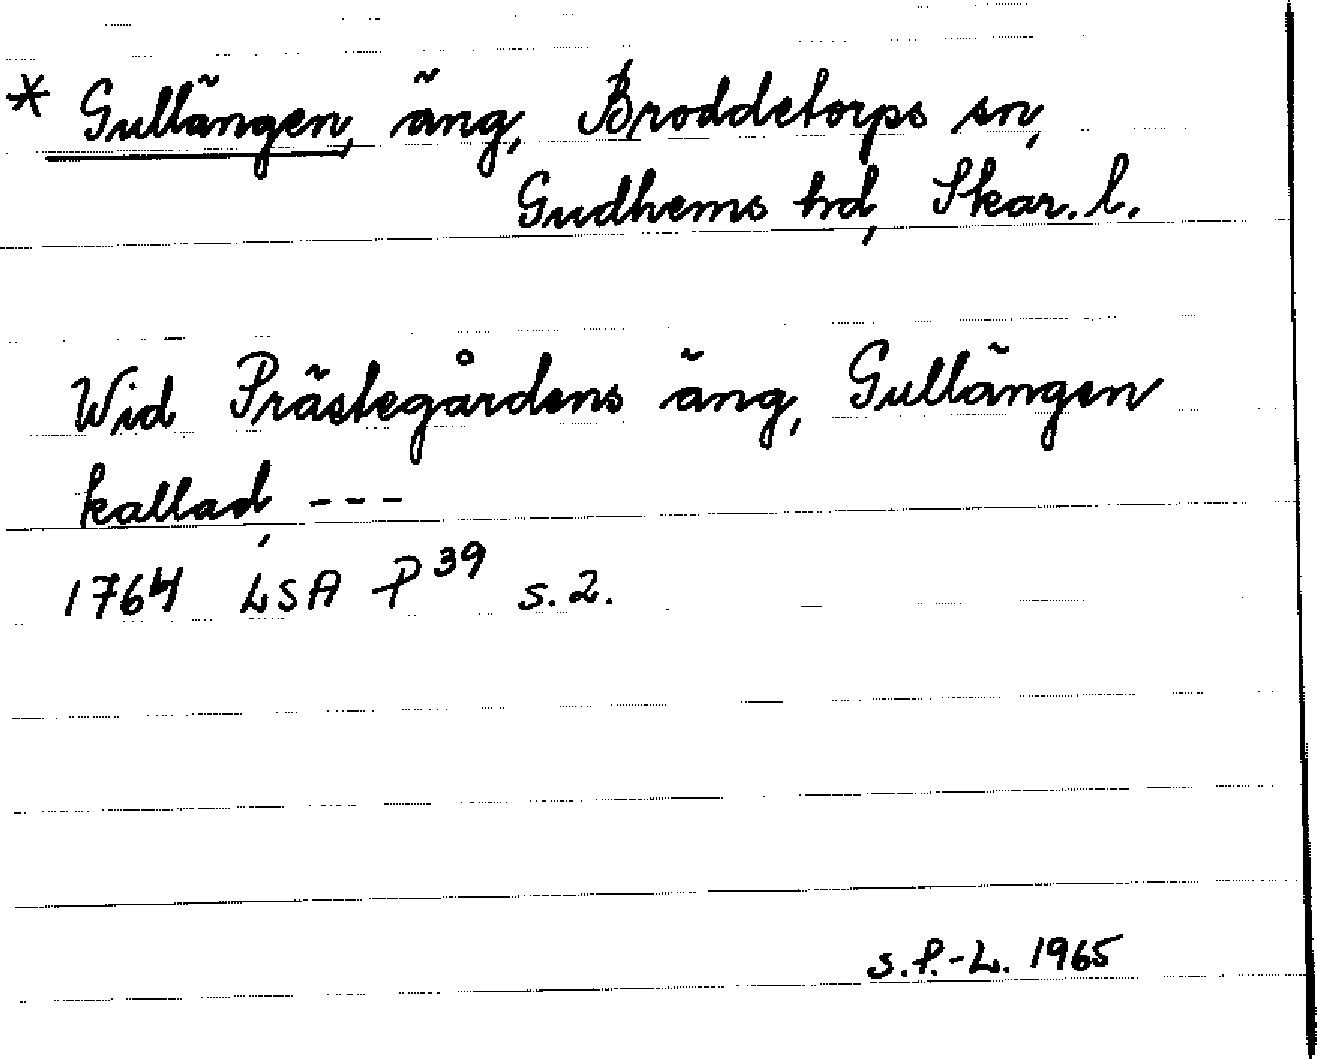 * Gullängen, äng, Broddetorps sn,
Gudhems hd, Skar. l.
Wid Prästegårdens äng, Gullängen
kallad, ---
1764 LSA P 39 s. 2.
S.P.-L. 1965